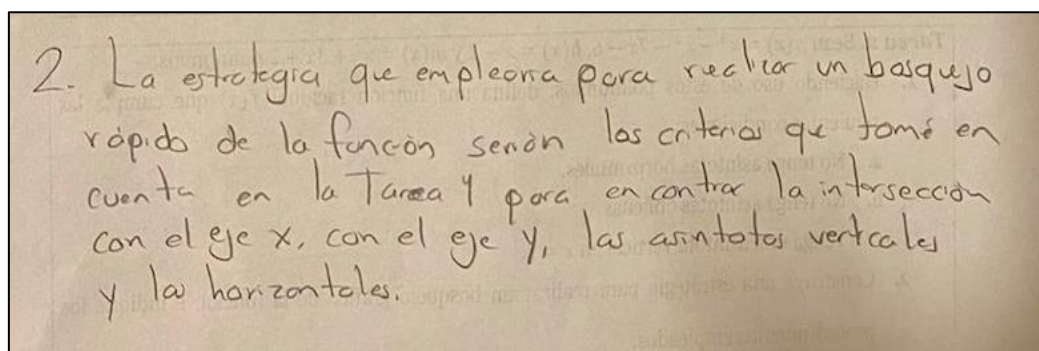 2. La estrategia que emplearia para realizar un bosquejo
rápido de la función serían los criterios que tomé en
cuenta en la Tarea 4 para encontrar la intersección
con el eje x, con el eje y, las asintotas verticales
y las horizontales.